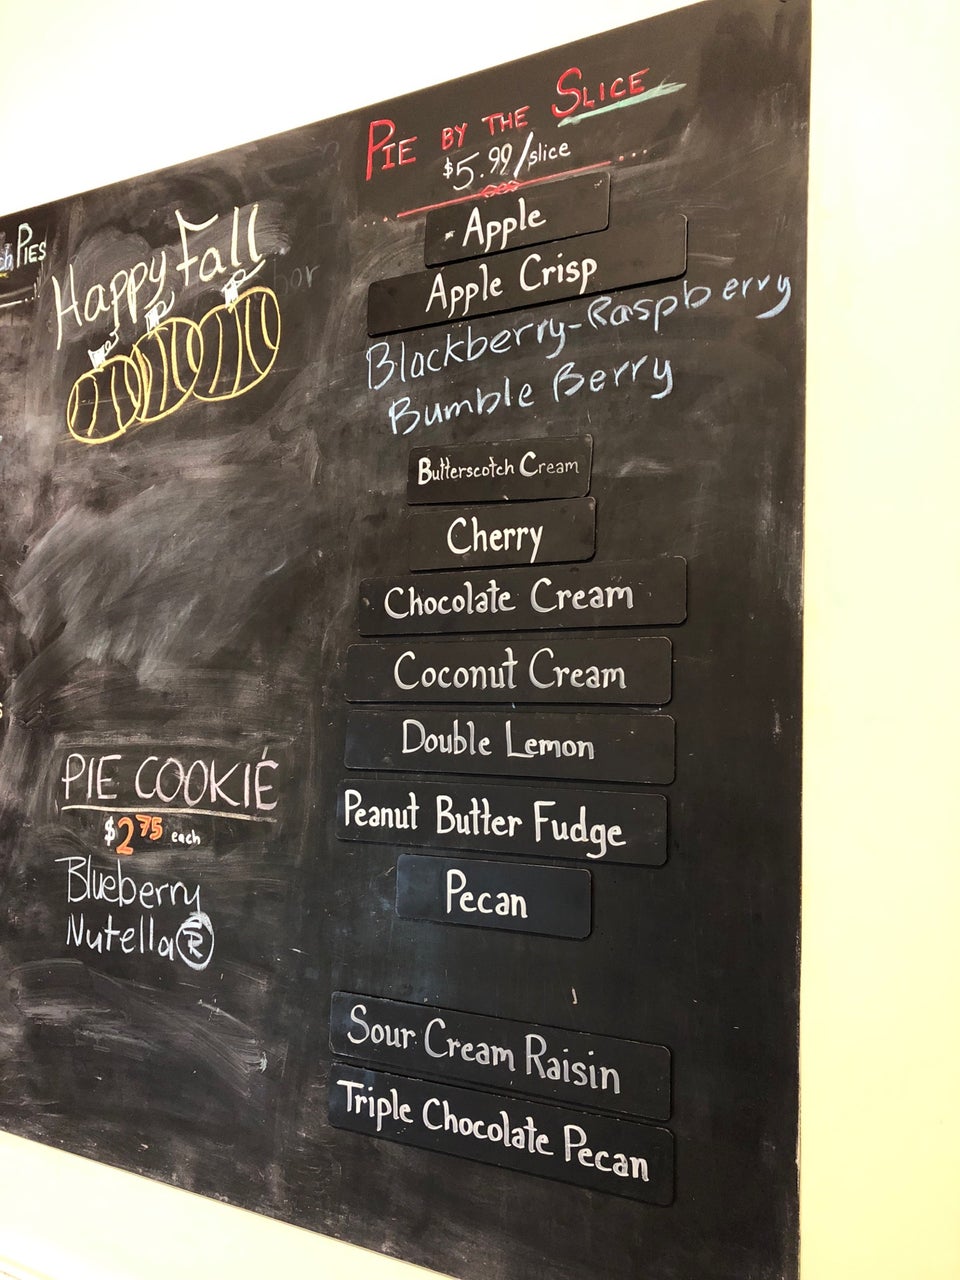 PIES
Happy Fall
PIE COOKIÉ
$2.75 each
Blueberry
Nutella®
PIE BY THE SLICE
$5.99/slice
Apple
Apple Crisp
Blackberry-Raspberry
Bumble Berry
Butterscotch Cream
Cherry
Chocolate Cream
Coconut Cream
Double Lemon
Peanut Butter Fudge
Pecan
Sour Cream Raisin
Triple Chocolate Pecan